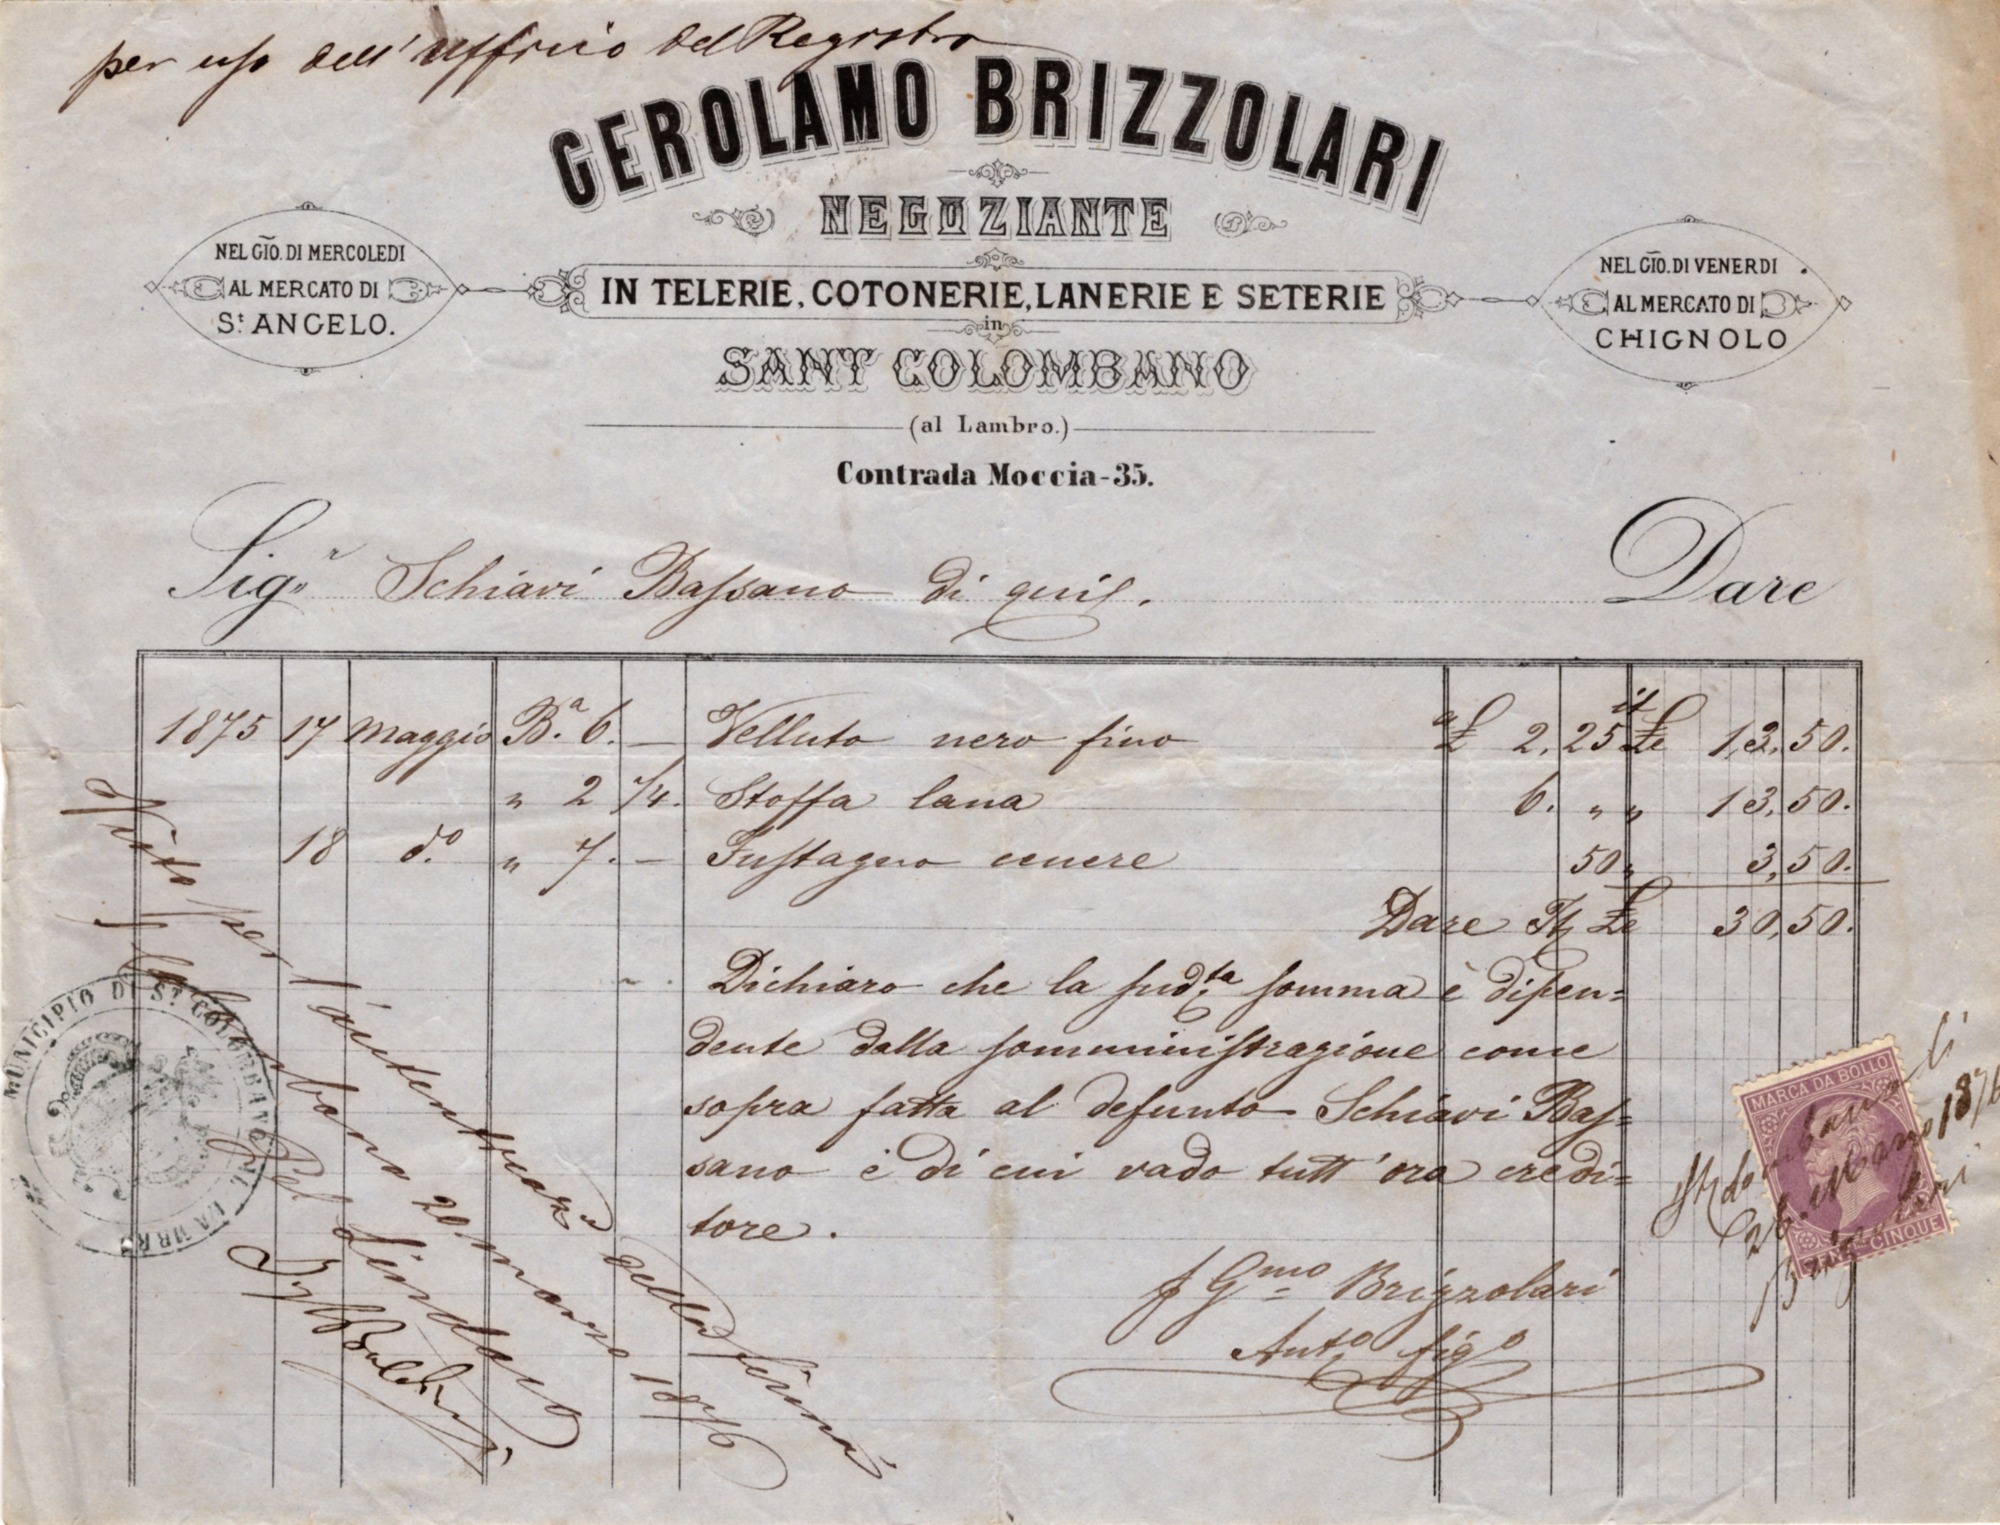 per uso dell'Ufficio del Registro
GEROLAMO BRIZZOLARI
NEGOZIANTE
NEL GIO. DI MERCOLEDI
AL MERCATO DI
St. ANGELO.
IN TELERIE, COTONERIE, LANERIE E SETERIE
NEL GIO. DI VENERDI
AL MERCATO DI
CHIGNOLO
in
SANT COLOMBANO
(al Lambro.)
Contrada Moccia-35.
Sigr Schiavi Bassano di quil. Dare
1875 17 Maggio Ba. 6. — Velluto nero fino a £ 2,25 it £e 13,50.
" 2 1/4. Stoffa lana 6. " " 13,50.
18 do. " 7. — Fustagno cenere 50 " 3,50.
Dare It £e 30,50.
Dichiaro che la sudta. somma è dipen=
dente dalla somministrazione come
sopra fatta al defunto Schiavi Bas=
sano è di cui vado tutt'ora credi=
tore.
f Gmo Brizzolari
Anto figo
Visto per l'autenticaz della firma
S. Colombano 20 marzo 1876
Pel Sindaco
MUNICIPIO DI St. COLOMBANO AL LAMBRO
MARCA DA BOLLO
CENT. CINQUE
St Colombano li
26 Marzo 1876
Brizzolari